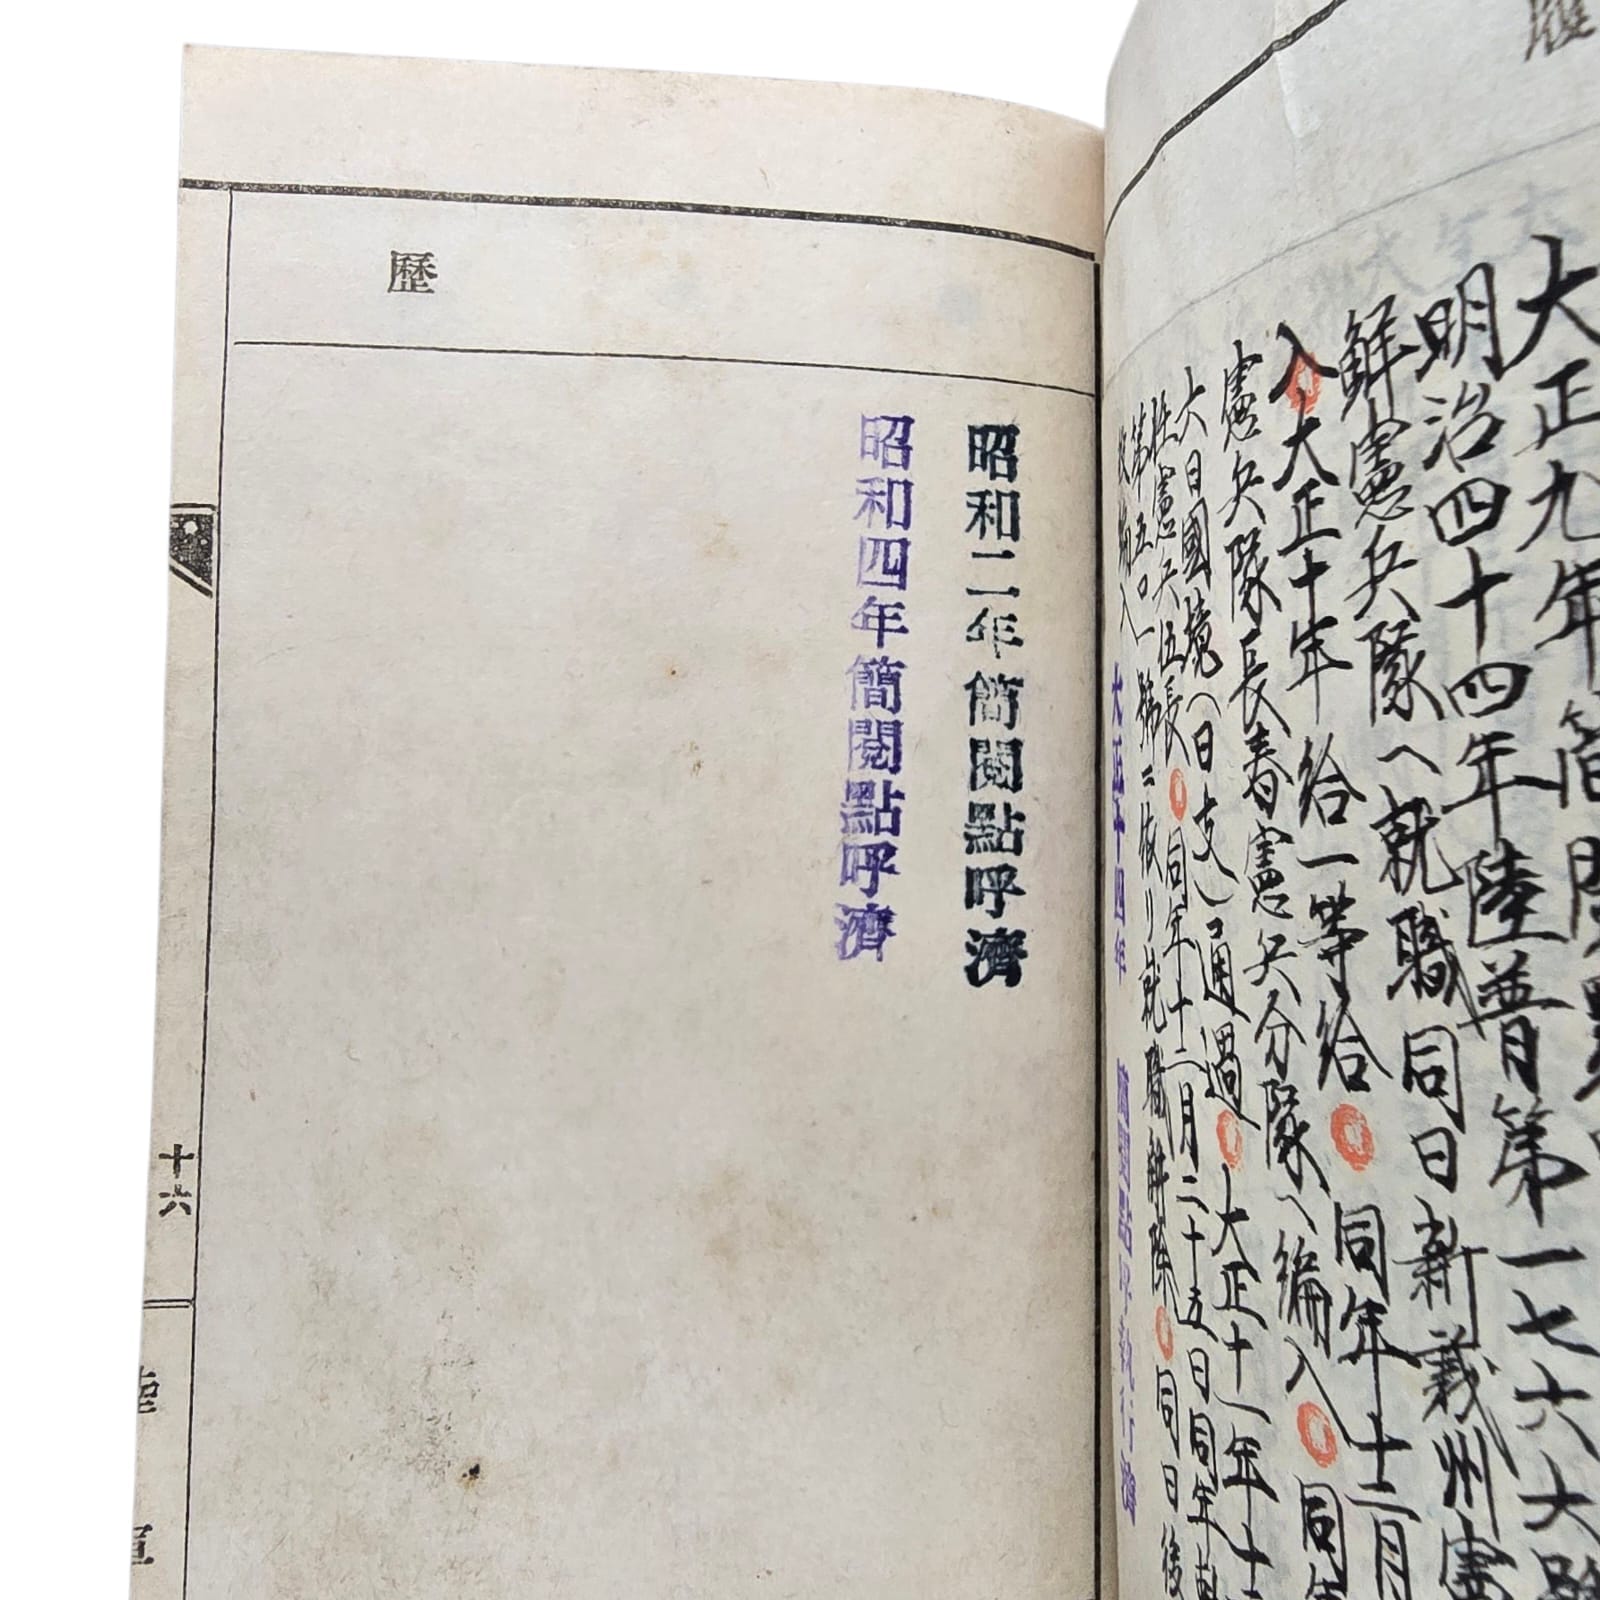 大正九年簡閲點呼
明治四十四年陸普第一七六六號
鮮憲兵隊へ就職同日新義州憲
入大正十年給一等給同年十二月
憲兵隊長春憲兵分隊へ編入同年
大日國境(日支)通過大正十一年十二
性憲兵伍長同年十二月二十五日同年
第五〇一號ニ依リ就職解除同日後
大正十四年簡閲點呼執行濟
歷
昭和二年簡閱點呼濟
昭和四年簡閱點呼濟
十六
陸軍